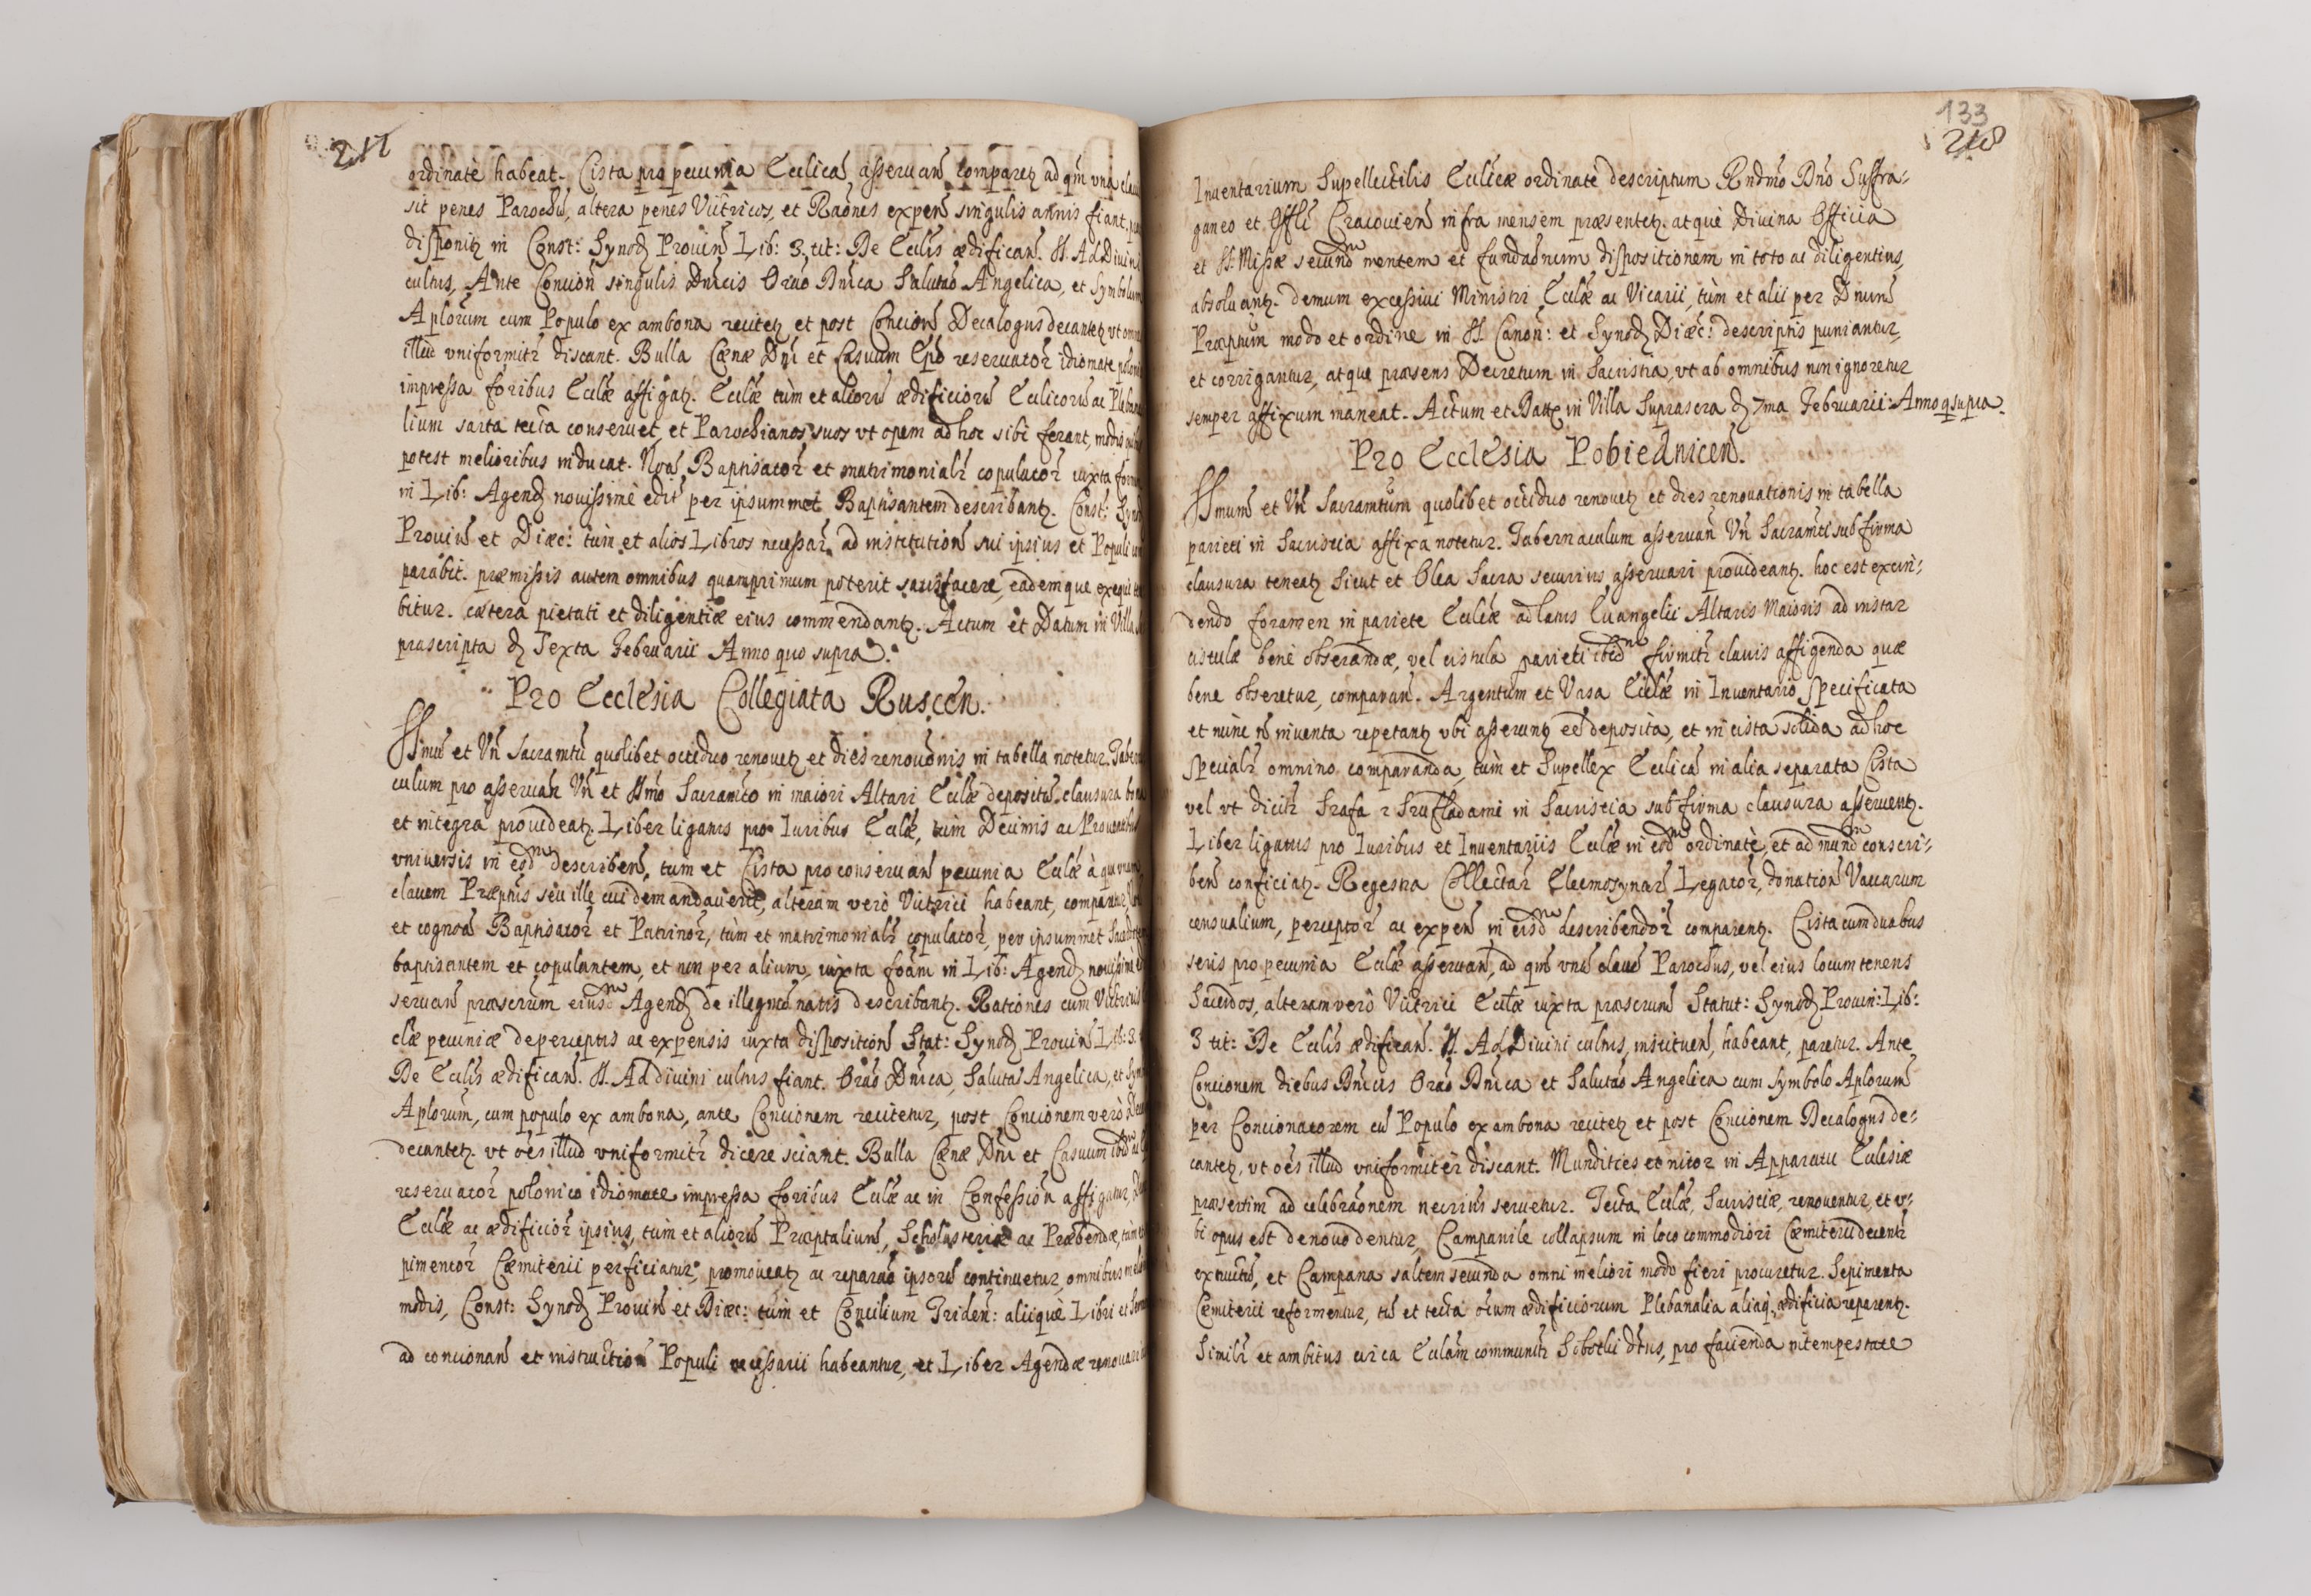 217
ordinatè habeat. Cista pro pecunia Ecclicã asseruan̄ comparetz ad qm̄ vna clauis
sit penes Parochū, altera penes Vitricos, et Raōnes expen̄ singulis annis fiant,
disponitz in Const: Synodz Prouin̄ Lib: 3. tit: De Ecclīs ædifican̄. §. Ad Diuini
cultus, Ante Concion̄ singulis Dn̄icis Orāo Dn̄ica Salutāo Angelica, et Symbolum
Aplorum̄ cum Populo ex ambona recitetz et post Concion̄ Decalogus decantetz vt omnes
illud vniformitr̄ discant. Bulla Cænæ Dn̄i et Casuum Ep̄o reseruator̄ idiomate polonico
impressa foribus Ecclǣ affigatz. Ecclǣ tùm et aliorū ædificiorū Ecclicorū ac Pleba
lium sarta tecta conseruet, et Parochianos suos vt opem ad hoc sibi ferant, modis quibus
potest melioribus inducat. Noā Baptisator̄ et matrimonialr̄ copulator̄ iuxta formam
in Lib: Agendz nouissimè edit̄ per ipsummet Baptisantem describantz. Const: Synodz
Prouin̄ et Diæc: tùm et alios Libros necessar̄ ad institution̄ sui ipsius et Populi
parabit. præmissis autem omnibus quamprimum poterit satisfacere, eademque exequi
bitur. cætera pietati et diligentiæ eius commendantz. Actum et Datum in Villa
præscripta dz Sexta Februarii Anno quo supra.
Pro Ecclesia Collegiata Ruscen̄.
SSmū et Vn̄ Sacramtū quolibet octiduo renouetz et dies renouōnis in tabella notetur. Taberna
culum pro asseruan̄ Vn̄ et SSmō Sacramtō in maiori Altari Ecclǣ depositū clausura bona
et integra prouideatz. Liber ligatus pro Iuribus Ecclǣ, tùm Decimis ac Prouentibus
vniuersis in eōdm̄ describen̄, tum et Cista pro conseruan̄ pecunia Ecclǣ à qua vnam
clauem Præptus̄ seu ille cui demandauerit, alteram verò Vitrici habeant, comparetur
et cognoā Baptisator̄ et Patrinor̄, tùm et matrimonialr̄ copulator̄, per ipsummet Sacerdotem
baptisantem et copulantem, et non per alium, iuxta foām in Lib: Agendz nouissimè
seruan̄ præscrum̄ eiusdm̄ Agendz de illegmē natis describantz. Rationes cum Vitricis
clǣ pecuniæ de perceptis ac expensis iuxta disposition̄ Stat: Synodz Prouin̄ Lib: 3.
De Ecclīs ædifican̄. §. Ad diuini cultus fiant. Orāo Dn̄ica, Salutāo Angelica, et Symb
Aplorum̄, cum populo ex ambona, ante Concionem recitetur, post Concionem verò
decantetz. vt oēs illud vniformitr̄ dicere sciant. Bulla Cænæ Dn̄i et Casuum
reseruator̄ polonico idiomate impressa foribus Ecclǣ ac in Confession̄ affigatur,
Ecclǣ ac ædificior̄ ipsius, tùm et aliorū Præptalium̄, Scholasteriæ ac Præbendæ,
pimentor̄ Cæmiterii perficiatur, promoueatz ac reparāo ipsorū continuetur, omnibus
modis, Const: Synodz Prouin̄ et Diæc: tùm et Concilium Triden̄: aliiquè Libri et
ad concionan̄ et instruction̄ Populi necessarii habeantur, et Liber Agendæ
133
218
Inuentarium Supellectilis Ecclicæ ordinatè descriptum Rndmō Dnō Suffra-
ganeo et Offli Cracouien̄ infra mensem præsentetz. atquè Diuina Officia
et SS. Missæ secundm̄ mentem et fundaōnum dispositionem in toto ac diligentius
absoluantz. demum excessiui Ministri Ecclǣ ac Vicarii, tùm et alii per Dnum̄
Præptum̄ modo et ordine in SS Canon̄: et Synodz Diæc: descriptis puniantur,
et corrigantur, atque præsens Decretum in Sacristia, vt ab omnibus non ignoretur
semper affixum maneat. Actum et Datt in Villa Suprascra dz 7ma Februarii: Anno q supra.
Pro Ecclesia Pobiednicen̄.
SSmum̄ et Vn̄ Sacramtum̄ quolibet octiduo renouetz et dies renouationis in tabella
parieti in Sacristia affixa notetur. Tabernaculum asseruan̄ Vn̄ Sacramti sub firma
clausura teneatz sicut et Olea Sacra securius asseruari prouideantz. hoc est excin-
dendo foramen in pariete Ecclǣ ad latus Euangelii Altaris Maioris ad instar
cistulæ benè obserandæ, vel cistula parieti ibidm̄ firmitr̄ clauis affigenda quæ
bene obseretur, comparan̄. Argentum et Vasa Ecclǣ in Inuentario specificata
et nunc n̄ inuenta repetantz vbi asseruntz eē deposita, et in cista solida ad hoc
specialr̄ omnino comparanda, tùm et Supellex Ecclicā in alia separata Cista
vel vt dicitr̄ Szafa z Szufladami in Sacristia sub firma clausura asseruentz.
Liber ligatus pro Iuribus et Inuentariis Ecclǣ in eodm̄ ordinatè, et ad mundm̄ conscri-
ben̄ conficiatz. Regestra Collectar̄ Eleemosynar̄ Legator̄, donation̄ Vaccarum
censualium, perceptor̄ ac expen̄ in eisdm̄ describendor̄ comparentz. Cista cum duabus
seris pro pecunia Ecclǣ asseruan̄, ad qm̄ vnū clauē Parochus, vel eius locum tenens
Sacerdos, alteram verò Vitrici Ecclǣ iuxta præscrum̄ Statut: Synodz Prouin: Lib:
3 tit: De Ecclīs ædifican̄. §. Ad Diuini cultus, instituen̄, habeant, paretur. Ante
Concionem diebus Dn̄icis Orāo Dn̄ica et Salutāo Angelica cum Symbolo Aplorum̄
per Concionatorem cū Populo ex ambona recitetz et post Concionem Decalogus de-
cantetz, vt oēs illud vniformiter̄ discant. Mundities et nitor in Apparatu Ecclesiæ
præsertim ad celebraōnem necrius̄ seruetur. Tecta Ecclǣ, Sacristiæ, renouentur, et v-
bi opus est denouo dentur, Campanile collapsum in loco commodiori Cæmiterii decentr̄
extructū, et Campana saltem secunda omni meliori modo fieri procuretur. Sepimenta
Cæmiterii reformentur, tū et tecta oīum ædificiorum Plebanalia aliaq; ædificia reparentz.
Similr̄ et ambitus circa Ecclām communitr̄ Sobotki dtus, pro facienda intempestate